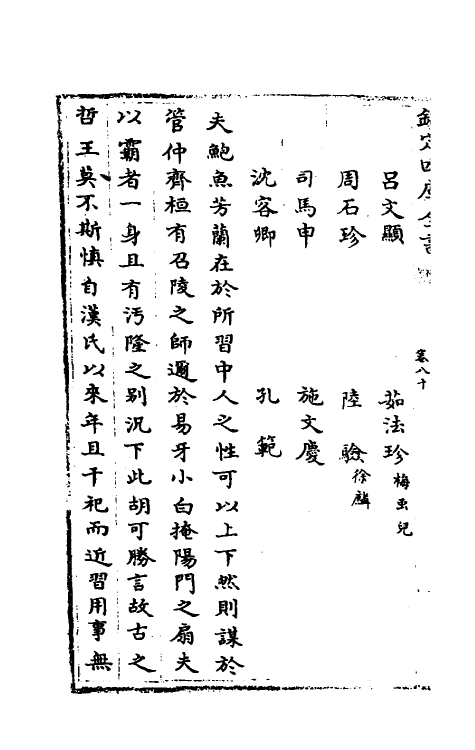 欽定四庫全書
卷八十
呂文顯　茹法珍 梅蟲兒
周石珍　陸驗 徐麟
司馬申　施文慶
沈客卿　孔範
夫鮑魚芳蘭在於所習中人之性可以上下然則謀於
管仲齊桓有召陵之師邇於易牙小白掩陽門之扇夫
以霸者一身且有汚隆之别況下此胡可勝言故古之
哲王莫不斯慎自漢氏以來年且千祀而近習用事無